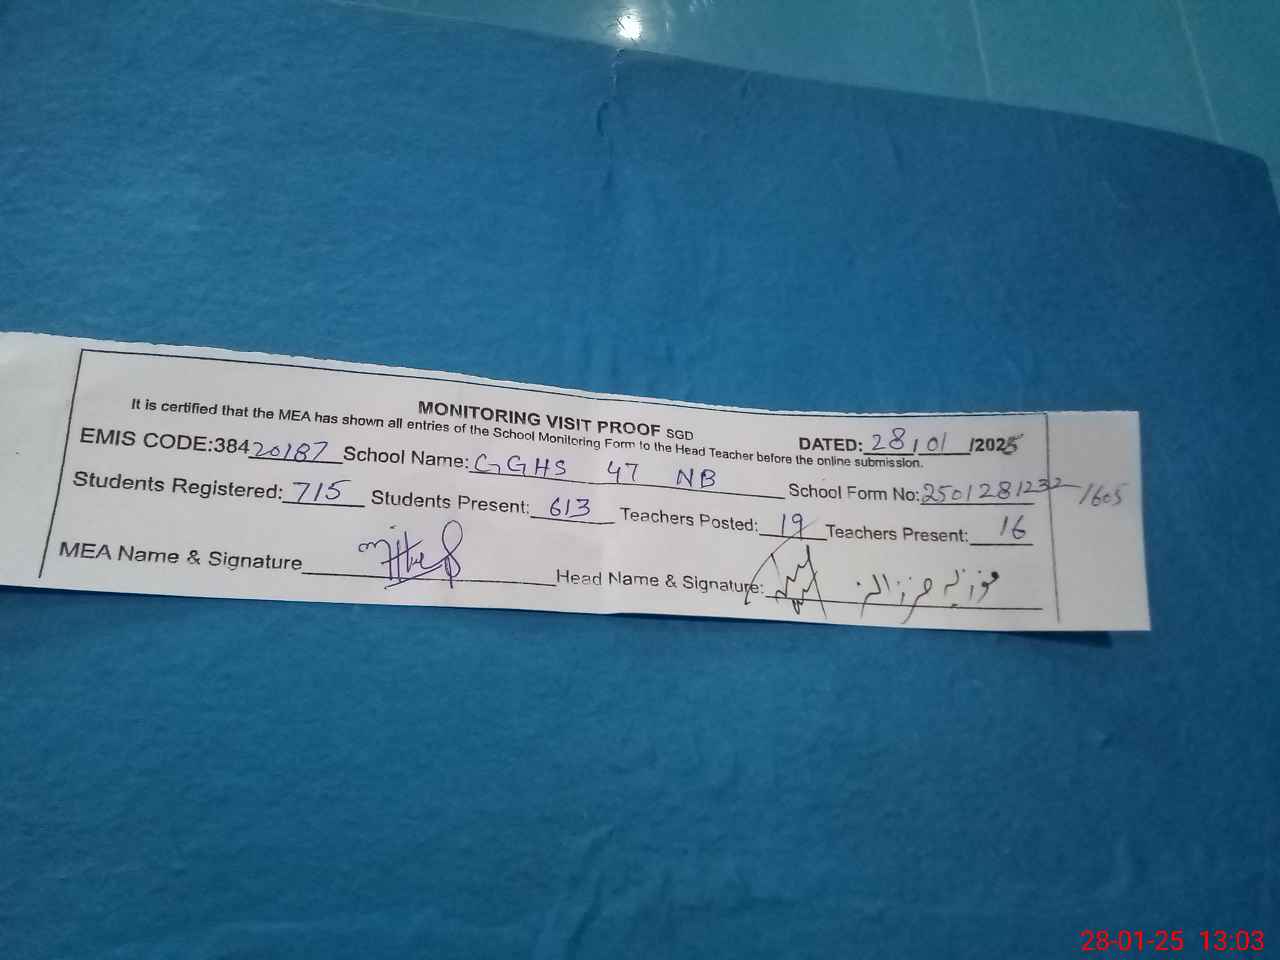 MONITORING VISIT PROOF SGD
It is certified that the MEA has shown all entries of the School Monitoring Form to the Head Teacher before the online submission.
DATED: 28/01/2025
EMIS CODE:38420187 School Name: GGHS 47 NB School Form No: 2501281232 /1605
Students Registered: 715 Students Present: 613 Teachers Posted: 19 Teachers Present: 16
MEA Name & Signature Head Name & Signature:
28-01-25 13:03